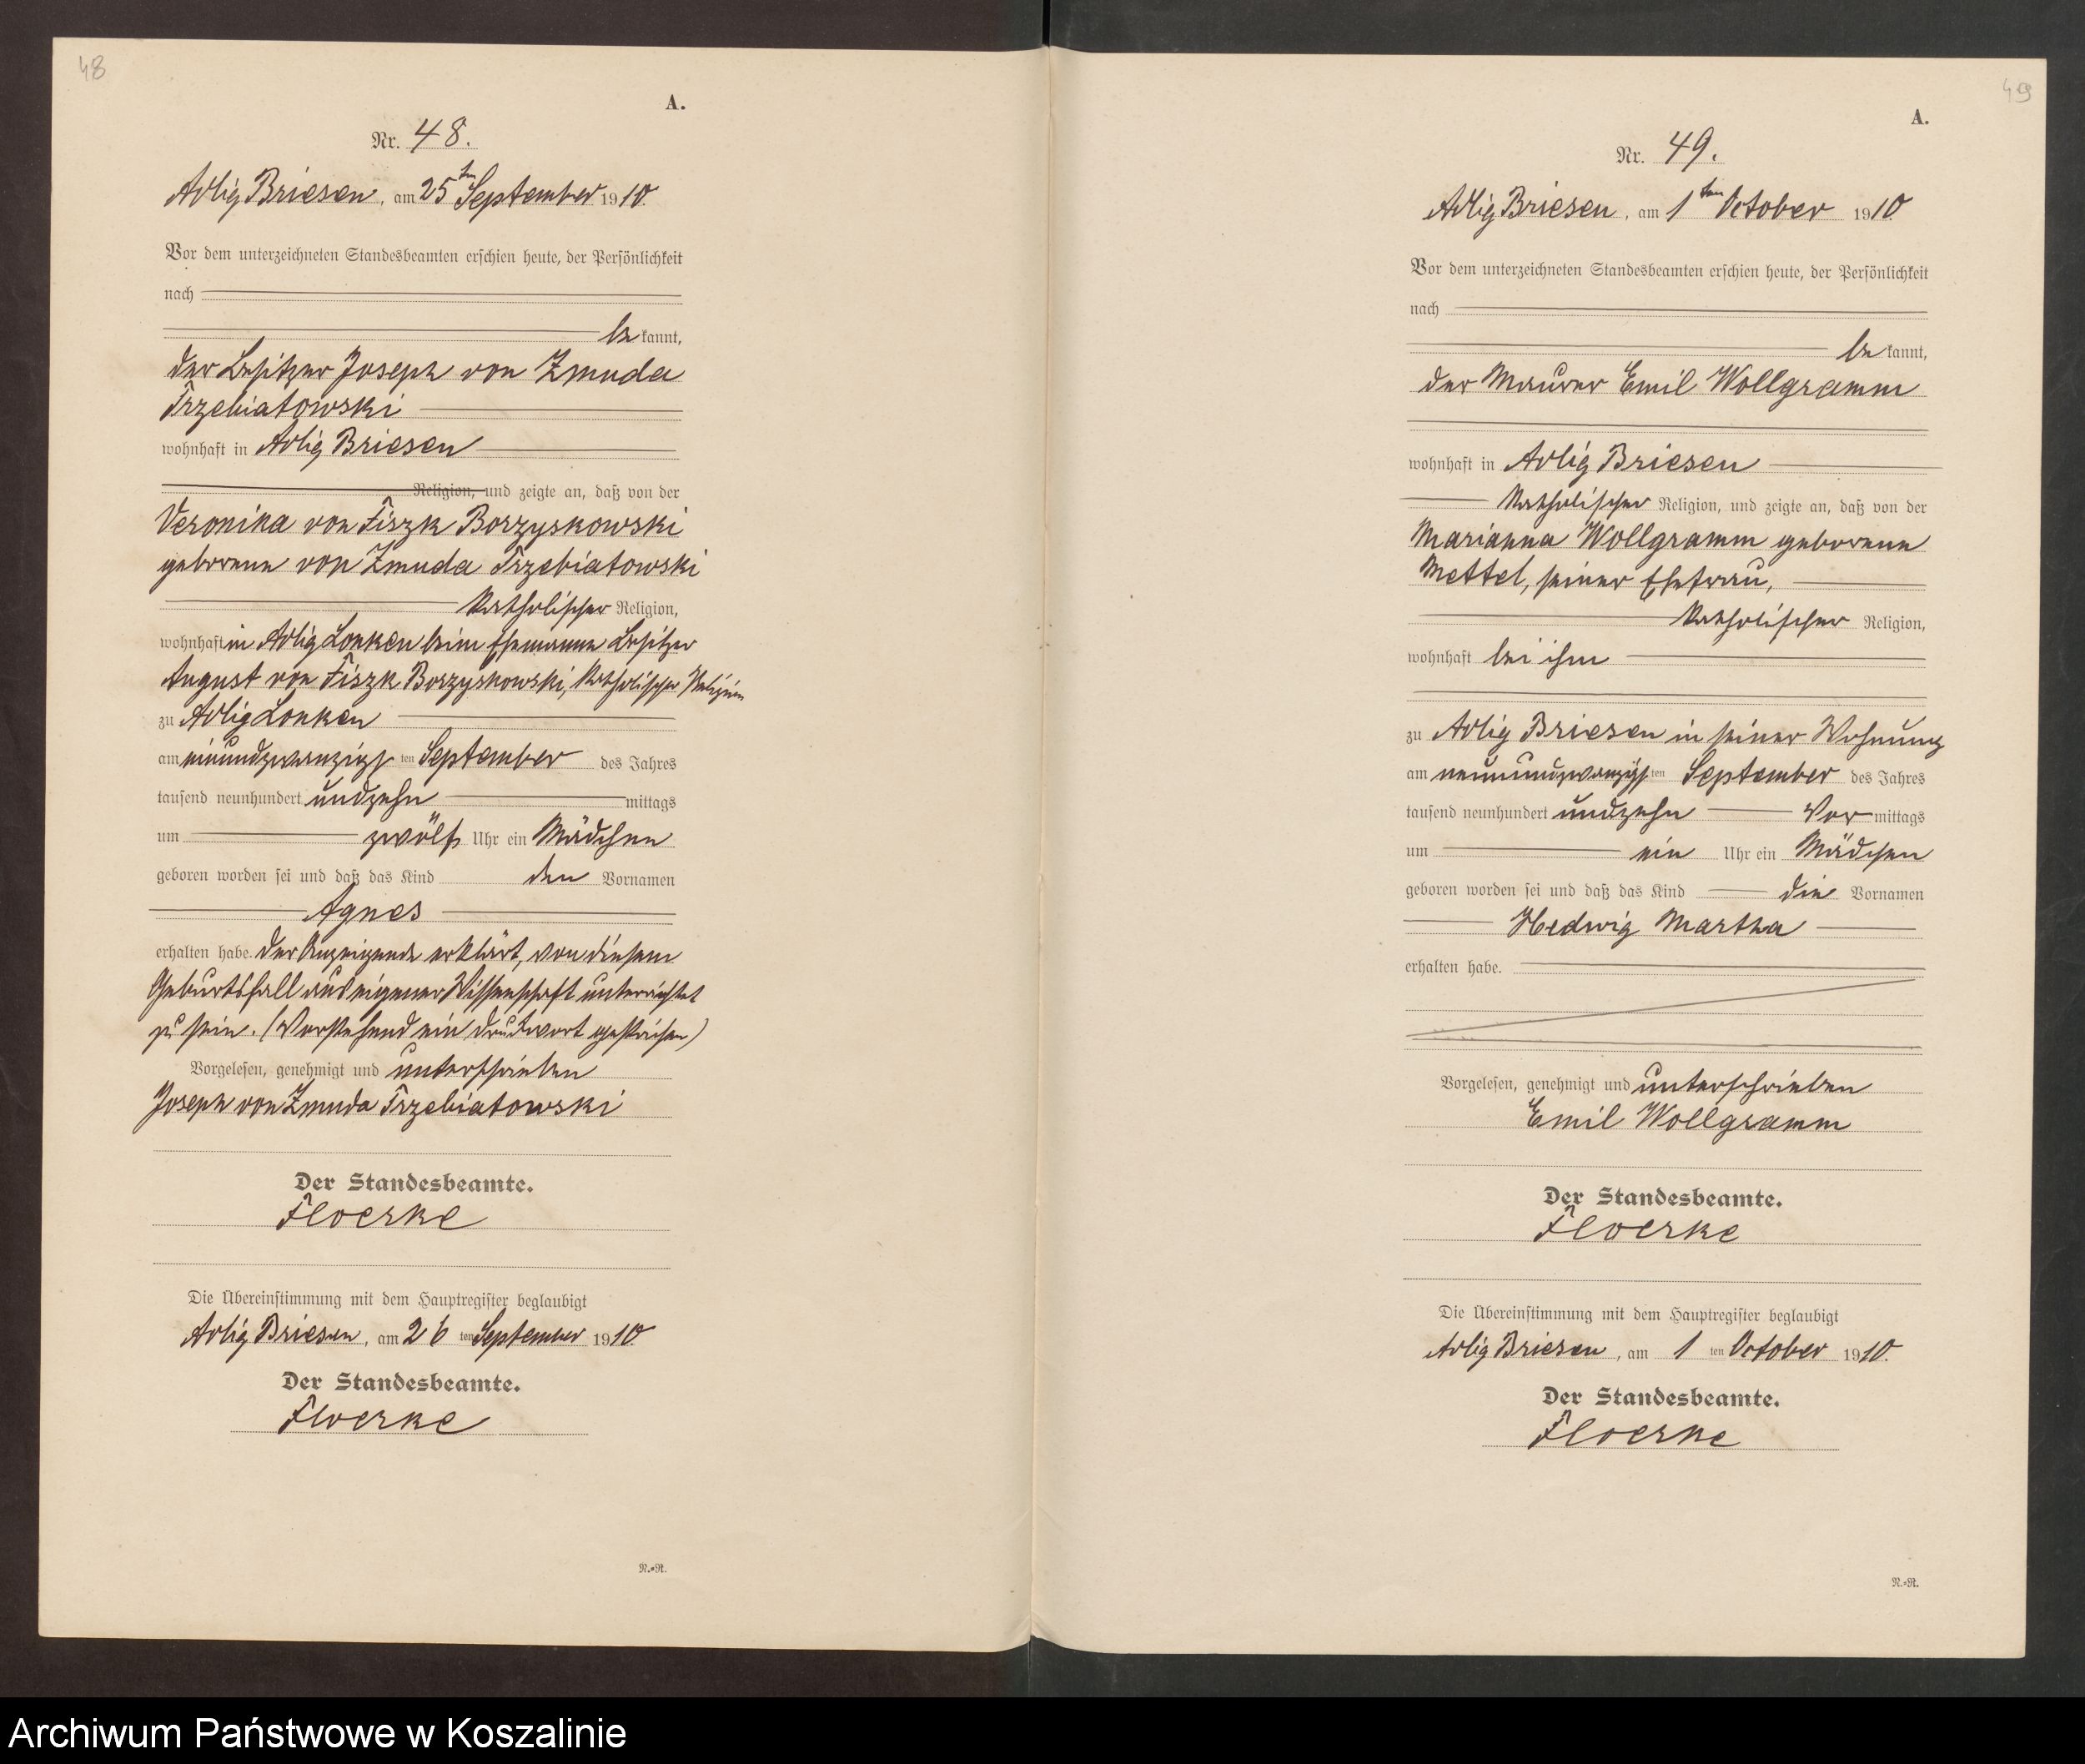 48
A.
Nr. 48.
Adlig Briesen, am 25ten September 1910.
Vor dem unterzeichneten Standesbeamten erschien heute, der Persönlichkeit
nach
be kannt,
der Besitzer Joseph von Zmuda
Trzebiatowski
wohnhaft in Adlig Briesen
Religion, und zeigte an, daß von der
Veronika von Fiszk Borzyskowski
geborene von Zmuda Trzebiatowski
katholischer Religion,
wohnhaft in Adlig Lonken beim Ehemanne Besitzer
August von Fiszk Borzyskowski, katholischer Religion
zu Adlig Lonken
am einundzwanzigsten September des Jahres
tausend neunhundert undzehn mittags
um zwölf Uhr ein Mädchen
geboren worden sei und daß das Kind den Vornamen
Agnes
erhalten habe. Der Anzeigende erklärt, von diesem
Geburtsfall aus eigener Wissenschaft unterrichtet
zu sein. (Vorstehend ein Druckwort gestrichen)
Vorgelesen, genehmigt und unterschrieben
Joseph von Zmuda Trzebiatowski
Der Standesbeamte.
Floerke
Die Übereinstimmung mit dem Hauptregister beglaubigt
Adlig Briesen, am 26 ten September 1910.
Der Standesbeamte.
Floerke
N.=R.
49
A.
Nr. 49.
Adlig Briesen, am 1ten October 1910.
Vor dem unterzeichneten Standesbeamten erschien heute, der Persönlichkeit
nach
be kannt,
der Maurer Emil Wollgramm
wohnhaft in Adlig Briesen
katholischer Religion, und zeigte an, daß von der
Marianna Wollgramm geborene
Mettel, seiner Ehefrau,
katholischer Religion,
wohnhaft bei ihm
zu Adlig Briesen in seiner Wohnung
am neunundzwanzigsten September des Jahres
tausend neunhundert undzehn Vor mittags
um ein Uhr ein Mädchen
geboren worden sei und daß das Kind die Vornamen
Hedwig Martha
erhalten habe.
Vorgelesen, genehmigt und unterschrieben
Emil Wollgramm
Der Standesbeamte.
Floerke
Die Übereinstimmung mit dem Hauptregister beglaubigt
Adlig Briesen, am 1 ten October 1910.
Der Standesbeamte.
Floerke
N.=R.
Archiwum Państwowe w Koszalinie